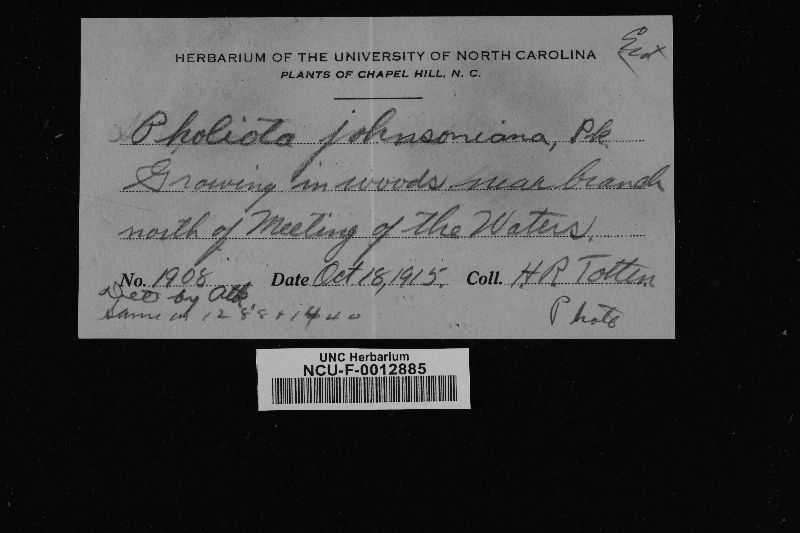 HERBARIUM OF THE UNIVERSITY OF NORTH CAROLINA
PLANTS OF CHAPEL HILL, N. C.
Pholiota johnsoniana, Pk
Growing in woods near branch
north of Meeting of the Waters.
No. 1908 Date Oct 18, 1915. Coll. H. R. Totten
Det by Atk
Same as 1288 + 1440
Photo
UNC Herbarium
NCU-F-0012885